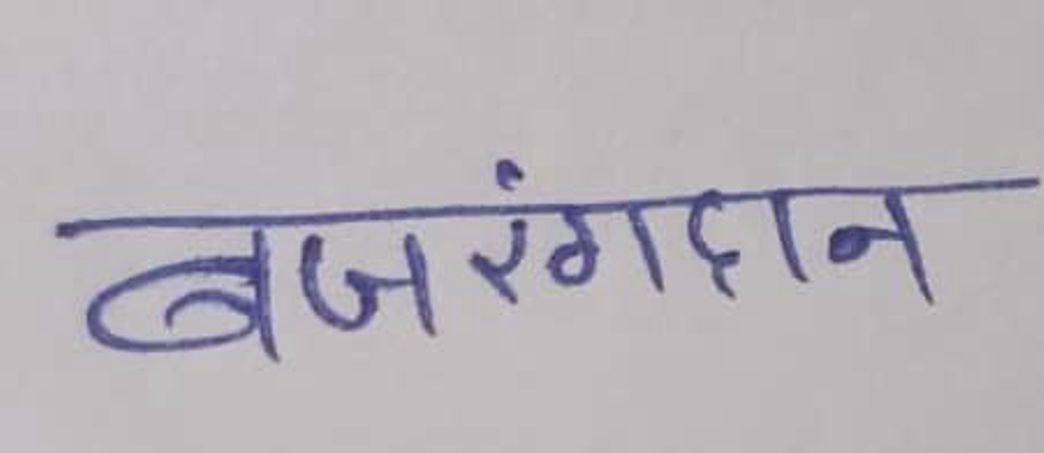 बजरंगदान